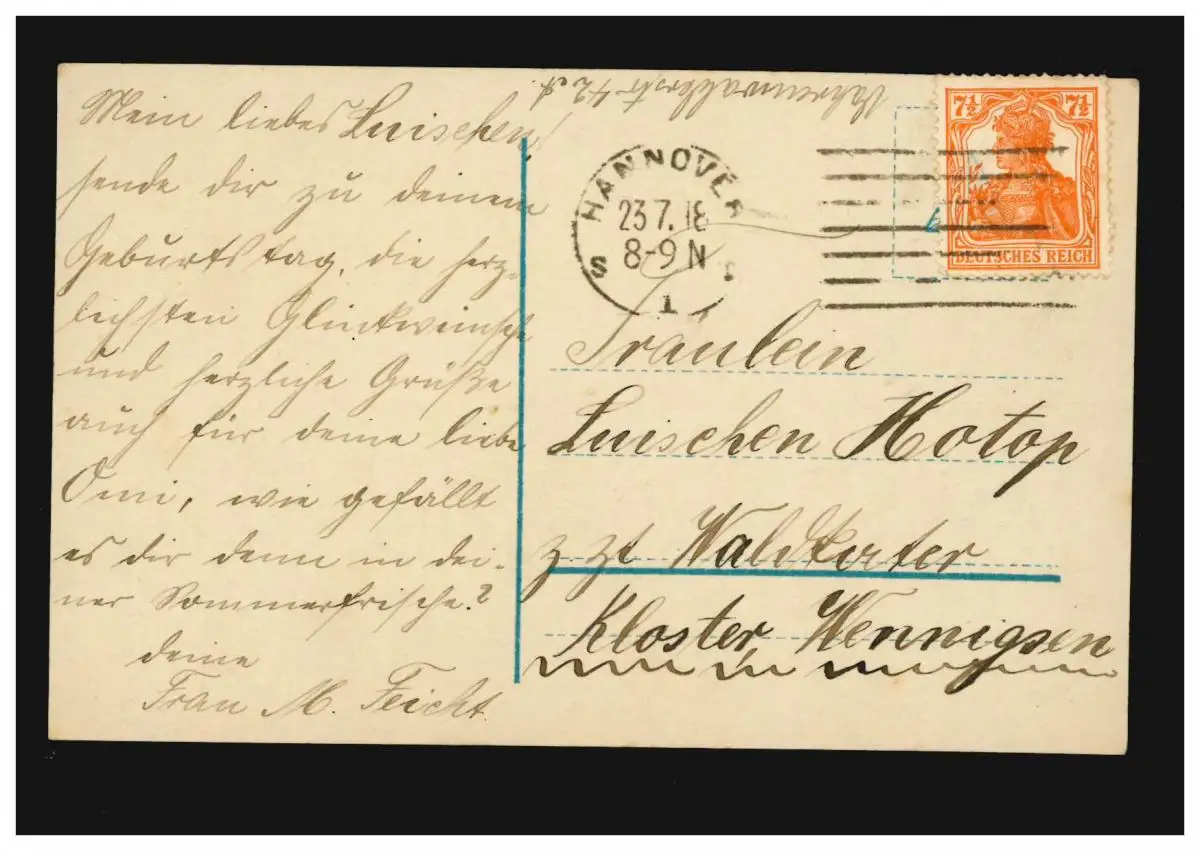 Mein liebes Luischen!
sende dir zu deinem
Geburtstag, die herz-
lichsten Glückwünsche
und herzliche Grüße
auch für deine liebe
Omi, wie gefällt
es dir denn in dei-
ner Sommerfrische?
deine
Frau M. Feicht.
Vahrenwalderstr 42
HANNOVER
23.7.18
8-9 N
S 1
7½ 7½
DEUTSCHES REICH
Fräulein
Luischen Hotop
z. Zt Waldkater
Kloster Wennigsen